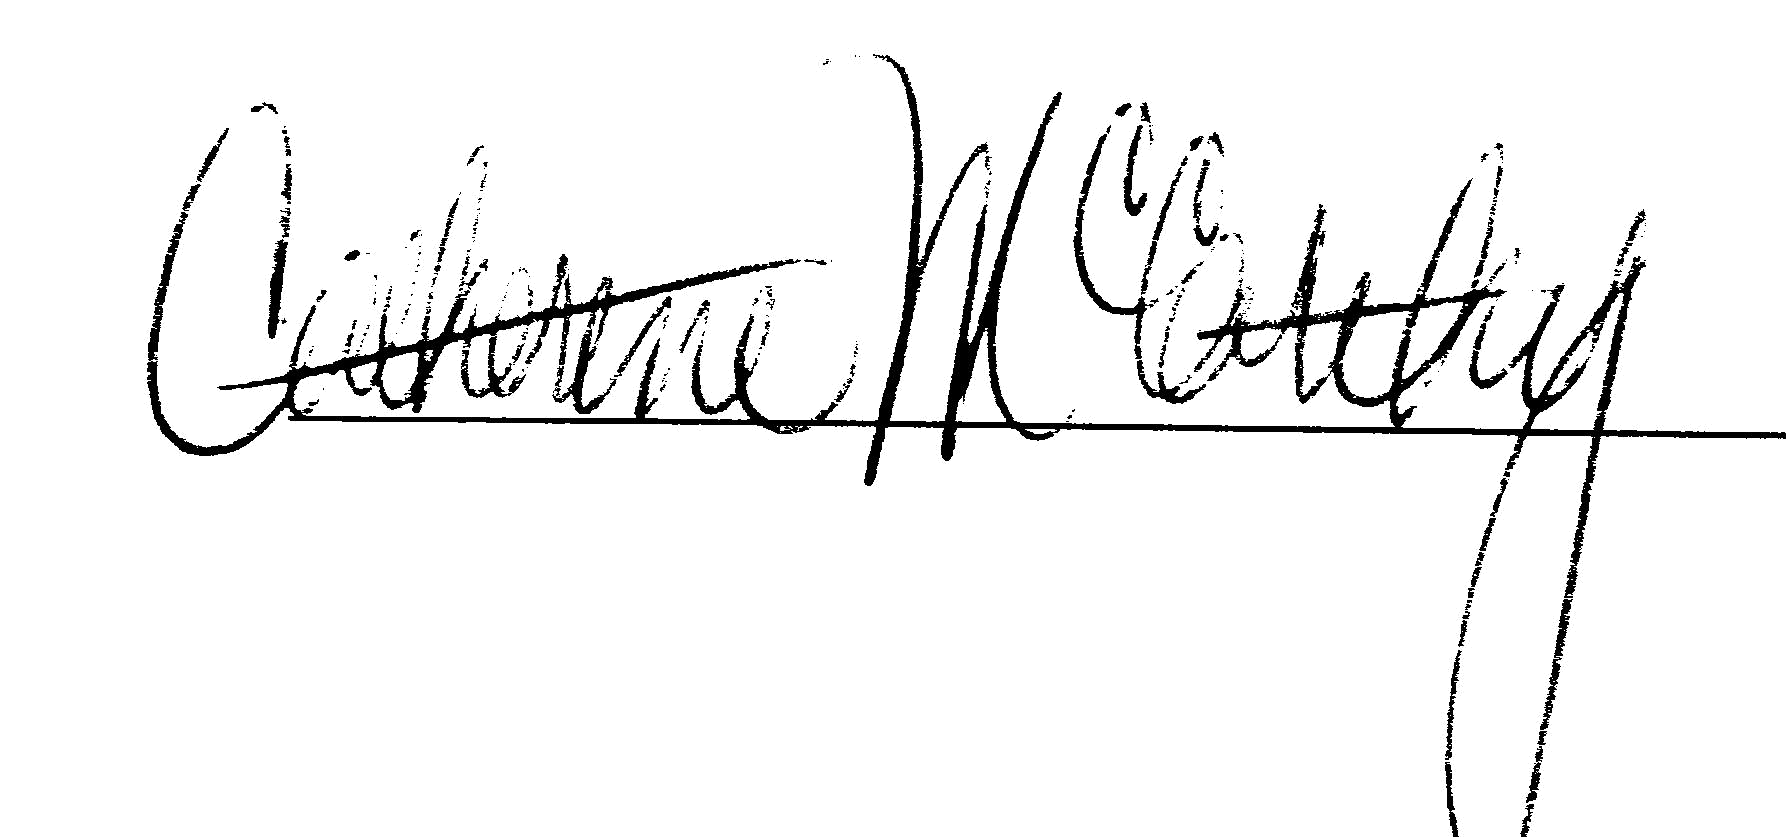 Catherine McCarthy